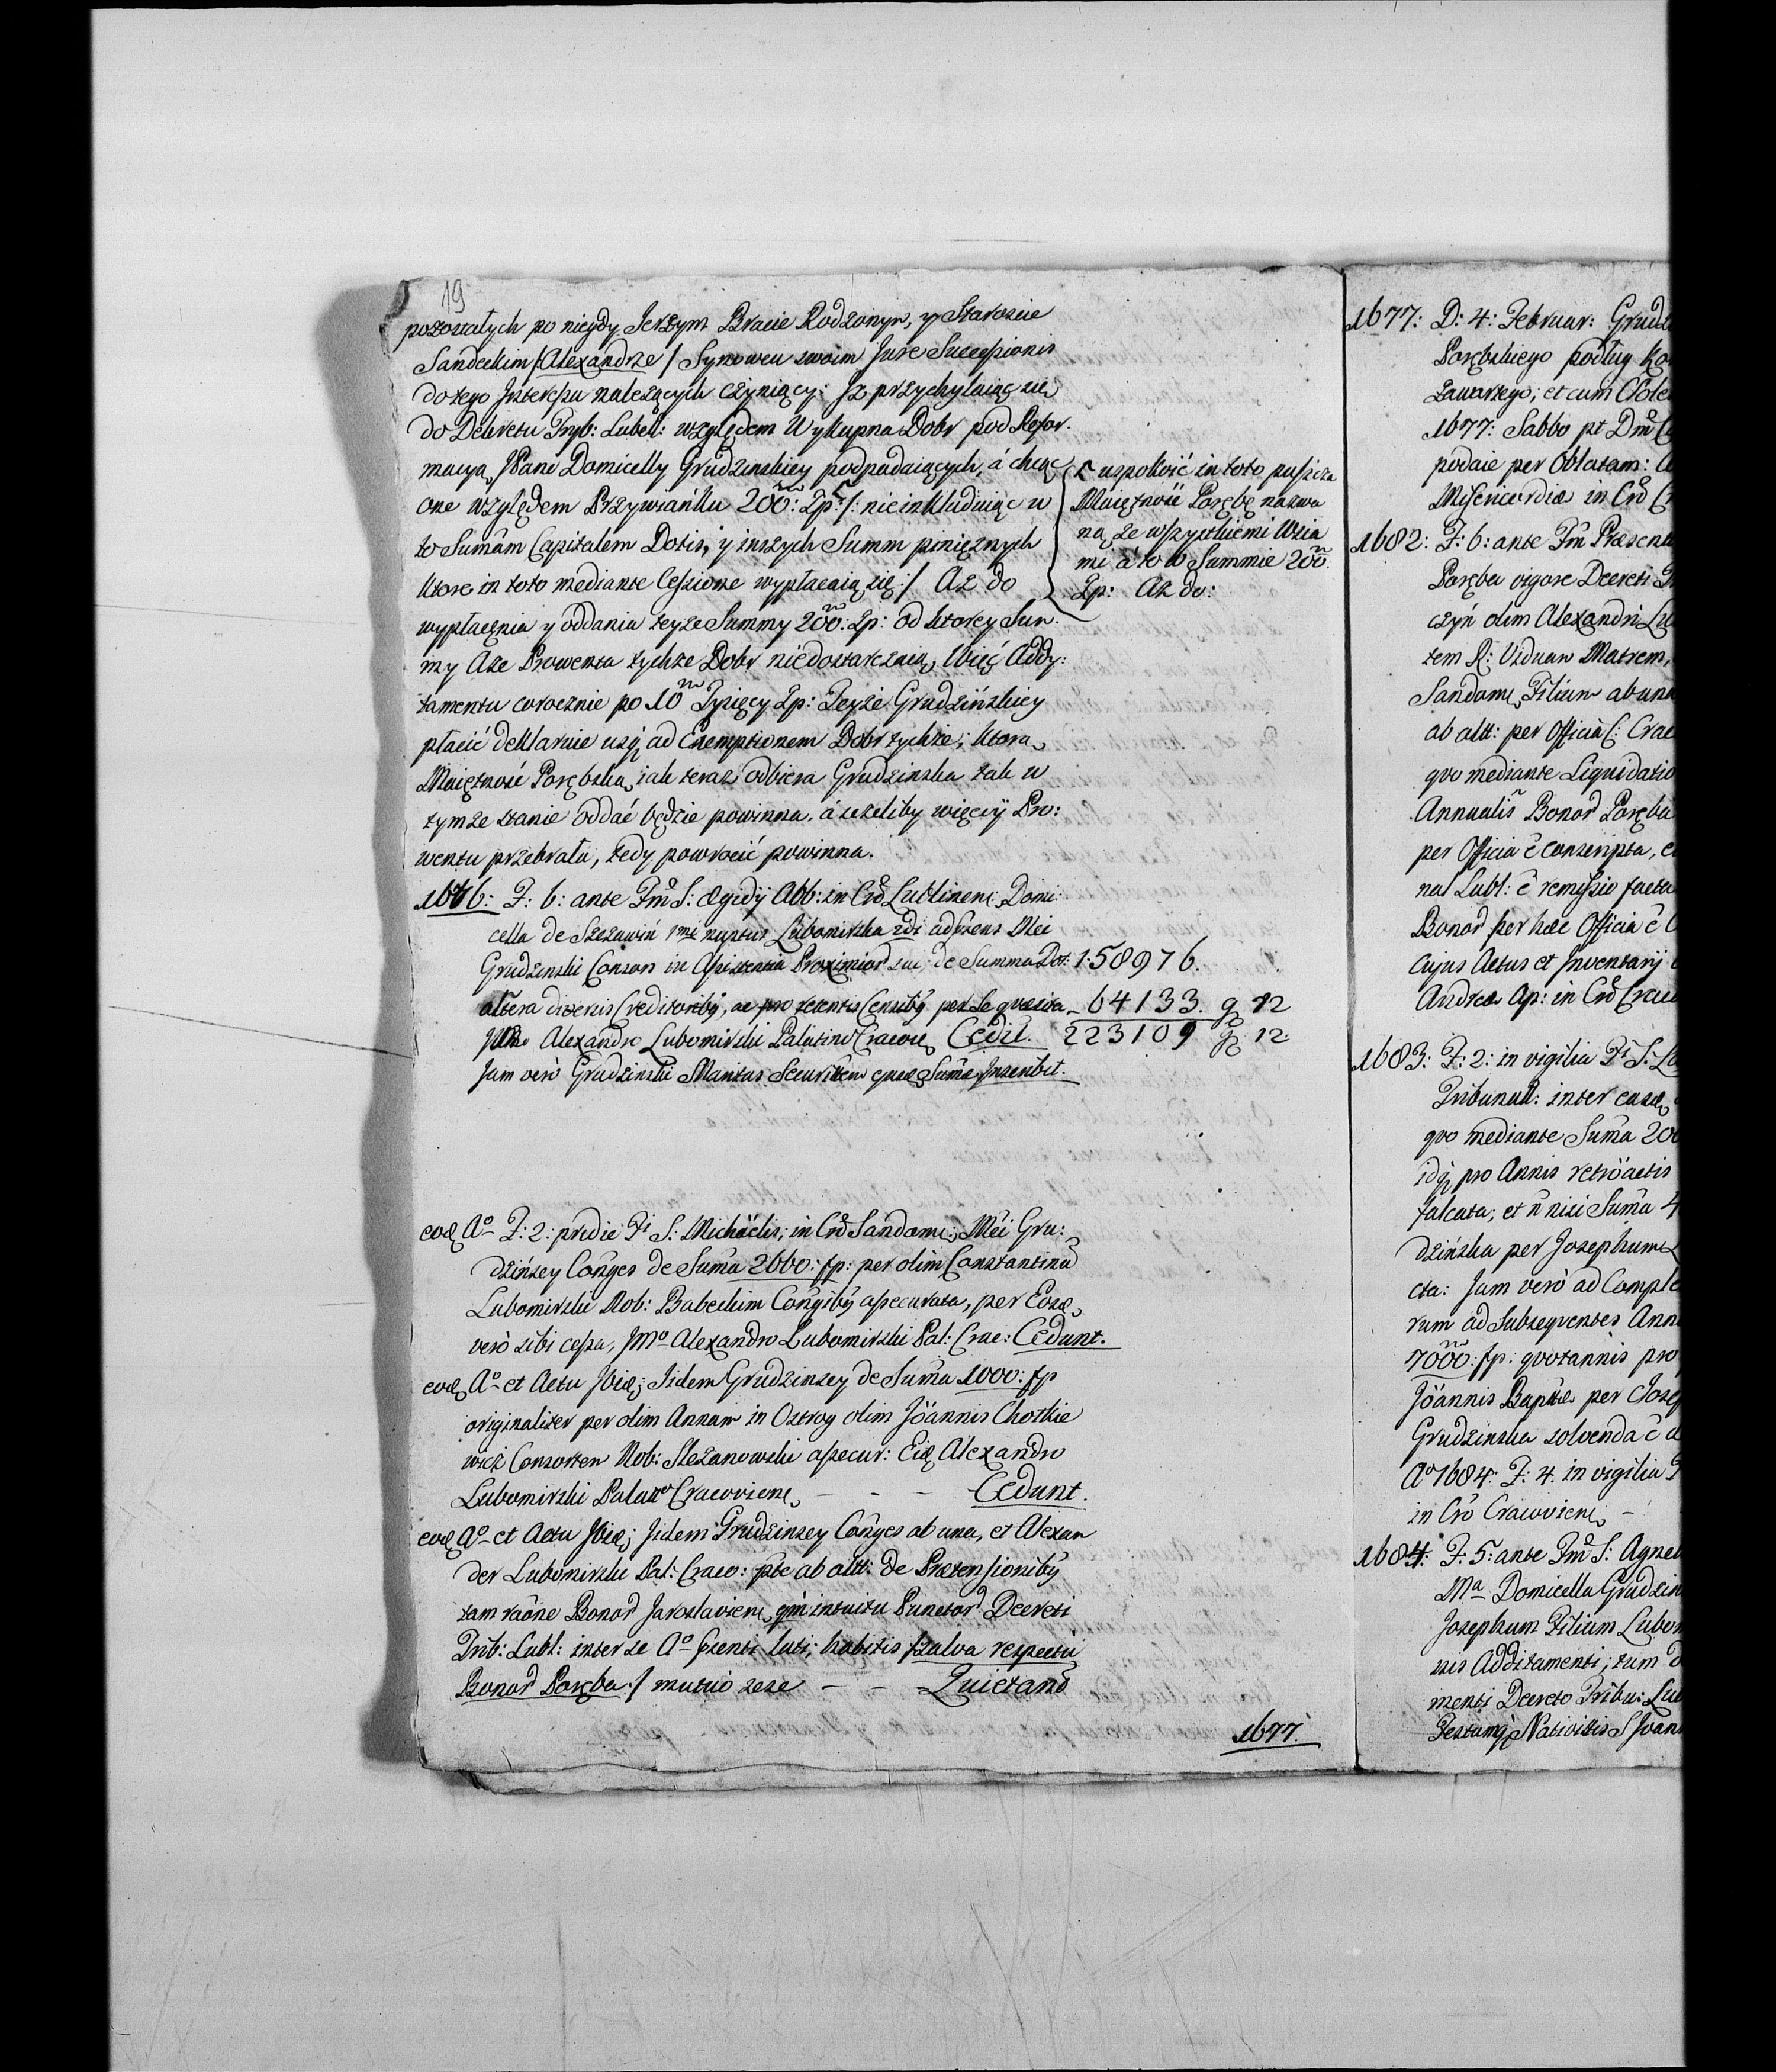 19
pozostałych po niegdy Jerzym Bracie Rodzonym, y Staroscie
Sandeckim /Alexandrze/ Synowcu swoim Jure Successionis
do tego Interessu należących czyniący: Iż przychylaiąc się
do Dekretu Tryb: Lubel: względem Wykupna Dobr pod Refor:
macyą JPani Domicelly Grudzinskiey podpadaiących, á chcąc
one względem Przywiańku 200:m Zp: /: nie inkluduiąc w
to Summam Capitalem Dotis, y inszych Summ pieniężnych
ktore in toto mediante Cessione wypłacaią się :/ Aż do
uspokoić in toto puszcza
Maiętność Porębę nazwa
ną ze wszystkiemi Wsia
mi á to w Summie 200m
Zp: Aż do:
wypłacęnia y oddania teyże Summy 200m: Zp: od ktorey Sum
my Aże Prowenta tychże Dobr niedostarczaią, Więc Addy:
tamentu corocznie po 10m Tysięcy Zp: Teyże Grudzińskiey
płacić deklaruie usq ad Exemptionem Dobr tychże; ktora
Maiętność Porębska, iak teraz odbiera Grudzinska tak w
tymże stanie oddać będzie powinna, á ieżeliby więcey Pro:
wentu przebrała, tedy powrocić powinna.
1676: F: 6: ante Fm S: Ægidij Abb: in Cro Lublinen: Domi:
cella de Szczawin 1mi nuptus Lubomirska 2di adpræns Mci
Grudzinski Consors in Assistentia Proximior sui; de Summa Dot: 158976.
altera diversis Creditoriby, ac pro retentis Censiby per Se quæsita - 64133. g 12
Alexandro Lubomirski Palatino Cracov Cedit. 223109 g 12.
Jam verò Grudzinski Maritus ejusd Suma Inscribit.
eod Ao F: 2: pridie Fi S: Michaelis; in Cro Sandom: Mci Gru:
dzińscy Conges de Suma 2660: fp: per olim Constantinu
Lubomirski Nob: Babeckim Congiby assecurata, per Eosd
verò sibi cessa, Jmo Alexandro Lubomirski Pal: Crac: Cedunt.
eod Ao et Actu Ibid; Iidem Grudzinscy de Suma 1000: fp
originaliter per olim Annam in Ostrog olim Joannis Chotkie
wicz Consortem Nob: Slezanowski assecur: Eid Alexandro
Lubomirski Palatto Cracovien - - - Cedunt.
eod Ao et Actu Ibid; Iidem Grudzinscy Conges ab una, et Alexan
der Lubomirski Pal: Crac: pte ab altt: de Prætensioniby
tam raône Bonor Jaroslavien, qm intuitu Punctor Decreti
Trib: Lubl: inter se Ao præsenti lati; habitis /salva respectu
Bonor Poręba :/ mutuò sese - - Quietant
1677.
1677: D: 4: Februar: Grudz
Porębskiego podług Ko
zawartego; et cum
1677: Sabbo pt Dm
podaie per Oblatam:
Misericordiæ in Cro
1682: F: 6: ante Fm Præsent
Poręba vigore Decreti
czyń olim Alexandri Lu
tem R: Viduam Matrem,
Sandom Filium ab una
ab altt: per Officia C: Crac
quo mediante Liquidatio
Annualis Bonor Poręba
per Officia ê conscripta, e
nal Lubl: ê remissio facta
Bonor per hæc Officia ê
cujus Actus et Inventarij
Andreæ Ap: in Cro Crac
1683: F: 2: in vigilia Fi S:
Tribunali: inter easd
quo mediante Suma 200
idq pro Annis retroactis
falcata, et n nisi Suma 4
dzińska per Josephum
cta: Jam verò ad Comple
rum ad Subsequentes Ann
7000m: fp: quotannis pro
Joannis Baptæ per Josep
Grudzinska solvenda ê
Ao 1684: F: 4. in vigilia
in Cro Cracovien -
1684: F: 5: ante Fm S: Agnet
Ma Domicella Grudzin
Josephum Filium Lubom
nis Additamenti; tum
menti Decreto Tribu: Lu
Festumq Nativitis S Joan